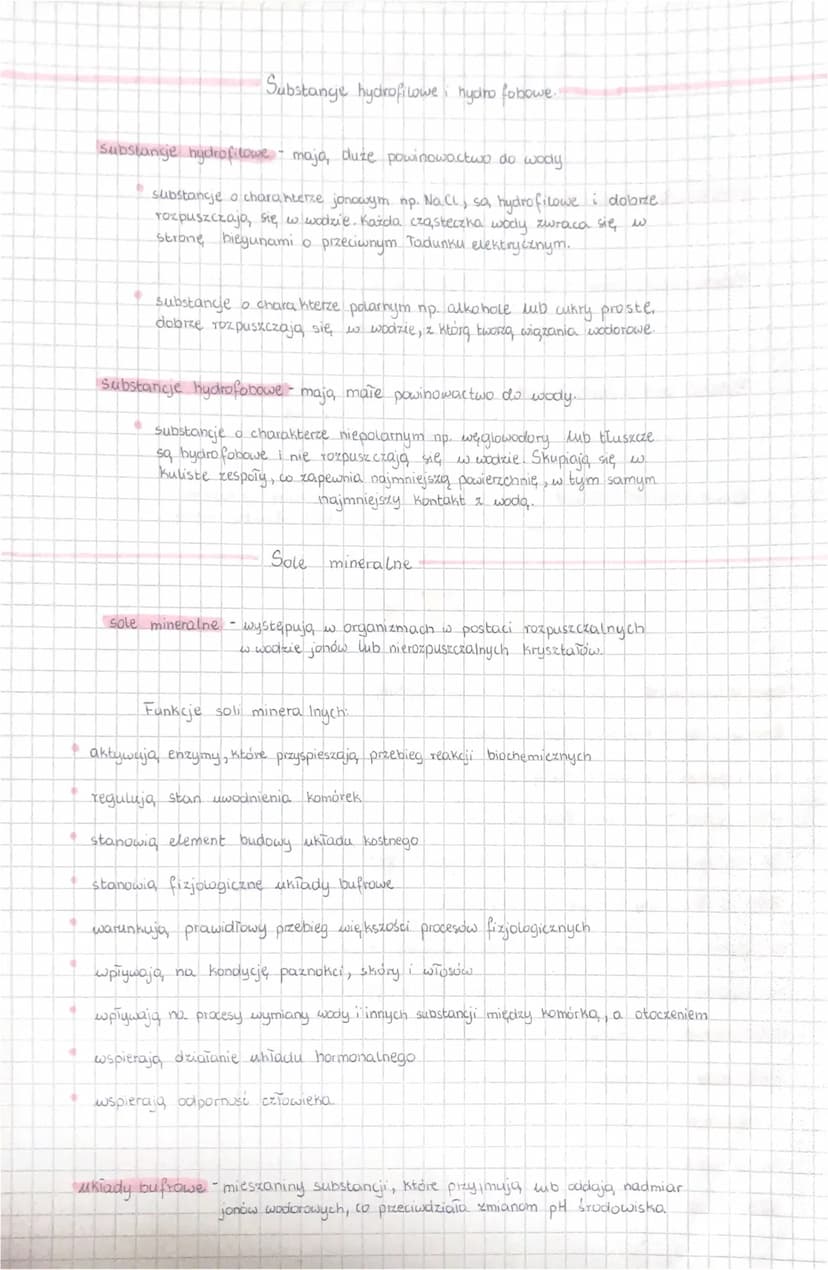 Substancje hydrofilowe i hydrofobowe.
substancje hydrofilowe - mają duże powinowactwo do wody
substancje o charakterze jonowym np. NaCl, są hydrofilowe i dobrze
rozpuszczają się w wodzie. Każda cząsteczka wody zwraca się w
stronę biegunami o przeciwnym ładunku elektrycznym.
substancje o charakterze polarnym np. alkohole lub cukry proste,
dobrze rozpuszczają się w wodzie, z którą tworzą wiązania wodorowe.
substancje hydrofobowe - mają małe powinowactwo do wody.
substancje o charakterze niepolarnym np. węglowodory lub tłuszcze
są hydrofobowe i nie rozpuszczają się w wodzie. Skupiają się w
kuliste zespoły, co zapewnia najmniejszą powierzchnię, w tym samym
najmniejszy kontakt z wodą.
Sole mineralne
sole mineralne - występują w organizmach w postaci rozpuszczalnych
w wodzie jonów lub nierozpuszczalnych kryształów.
Funkcje soli mineralnych:
aktywują enzymy, które przyspieszają przebieg reakcji biochemicznych
regulują stan uwodnienia komórek
stanowią element budowy układu kostnego
stanowią fizjologiczne układy bufrowe
warunkują prawidłowy przebieg większości procesów fizjologicznych
wpływają na kondycję paznokci, skóry i włosów
wpływają na procesy wymiany wody i innych substancji między komórką, a otoczeniem
wspierają działanie układu hormonalnego
wspierają odporność człowieka
układy bufrowe - mieszaniny substancji, które przyjmują lub oddają nadmiar
jonów wodorowych, co przeciwdziała zmianom pH środowiska.